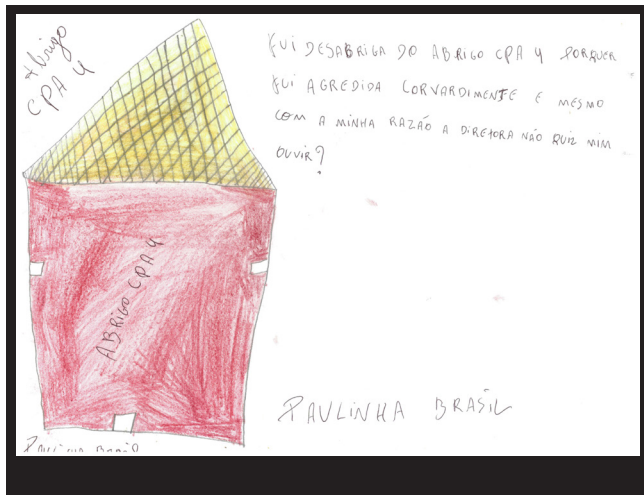 Abrigo
CPA 4
FUI DESABRIGA DO ABRIGO CPA 4 PORQUER
FUI AGREDIDA CORVARDIMENTE E MESMO
COM A MINHA RAZÃO A DIRETORA NÃO QUIZ MIM
OUVIR?
ABRIGO CPA 4
PAULINHA BRASIL
PAULINHA BRASIL